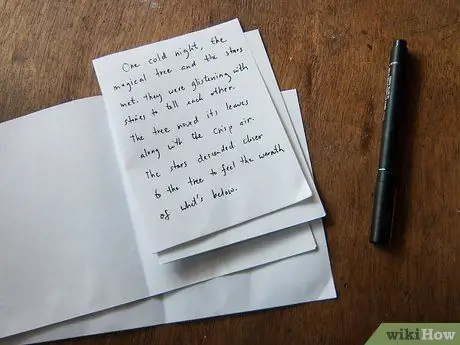 One cold night, the
magical tree and the stars
met. They were glistening with
stories to tell each other.
The tree moved its leaves
along with the crisp air.
The stars descended closer
to the tree to feel the warmth
of what's below.
wikiHow